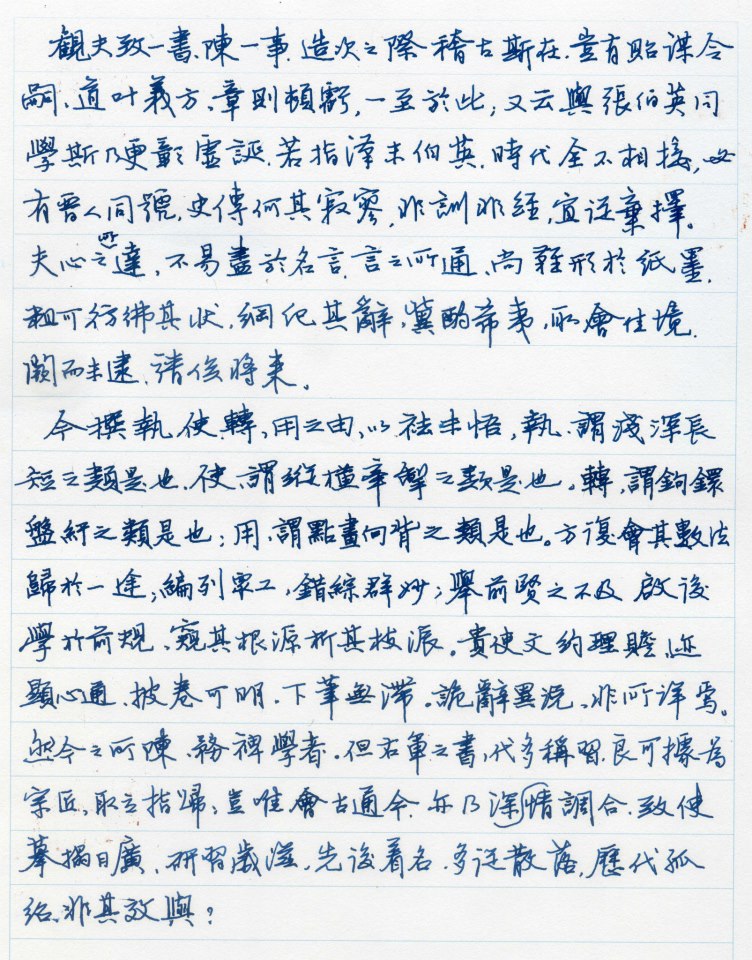 觀夫致一書、陳一事、造次之際、稽古斯在、豈有貽謀令
嗣、道叶義方、章則頓虧，一至於此；又云與張伯英同
學斯乃更彰虛誕。若指漢末伯英，時代全不相接，必
有晉人同號，史傳何其寂寥，非訓非經，宜從棄擇。
夫心之所達，不易盡於名言，言之所通、尚難形於紙墨，
粗可仿彿其狀，綱紀其辭，冀酌希夷，取會佳境，
闕而未逮、請俟將來。
今撰執、使、轉、用之由、以祛未悟，執、謂淺深長
短之類是也、使、謂縱橫牽掣之類是也。轉，謂鉤鐶
盤紆之類是也；用、謂點畫向背之類是也。方復會其數法
歸於一途；編列眾工，錯綜群妙；舉前賢之不及 啟後
學於前規、窺其根源析其枝派。貴使文約理贍、迹
顯心通、披卷可明、下筆無滯。詭辭異說、非所詳焉。
然今之所陳、務裨學者。但右軍之書，代多稱習，良可據為
宗匠、取立指歸，豈唯會古通今、亦乃深情調合、致使
摹搨日廣、研習歲滋、先後著名、多從散落，歷代孤
紹、非其效與？